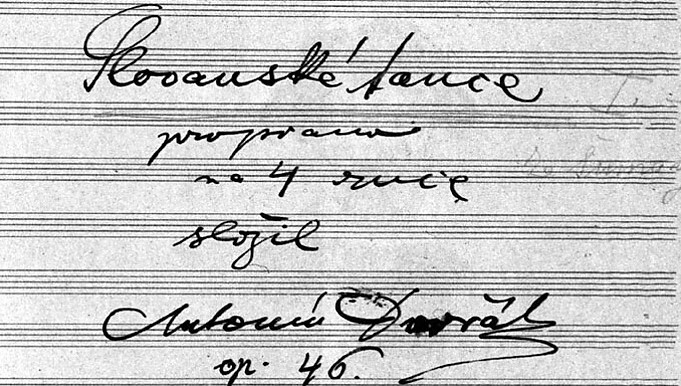 Slovanské tance
I.
pro piano
na 4 ruce
složil
Antonín Dvořák
op. 46.